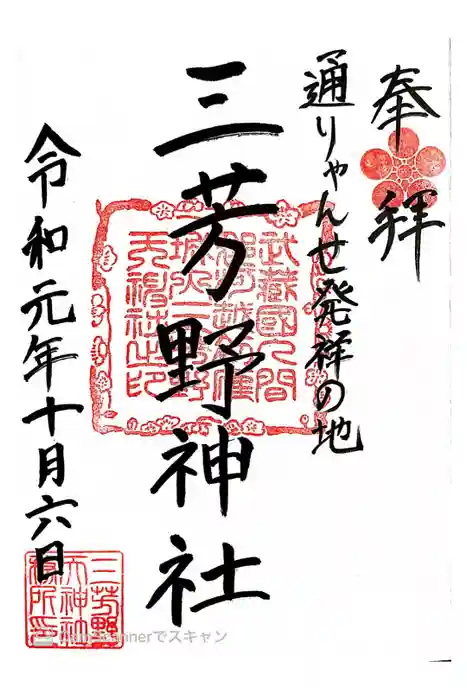 奉拝
通りゃんせ発祥の地
三芳野神社
令和元年十月六日
武蔵國入間
郡河越高崔
城内三芳野
天神社之印
三芳野
天神社
務所印
CamScannerでスキャン